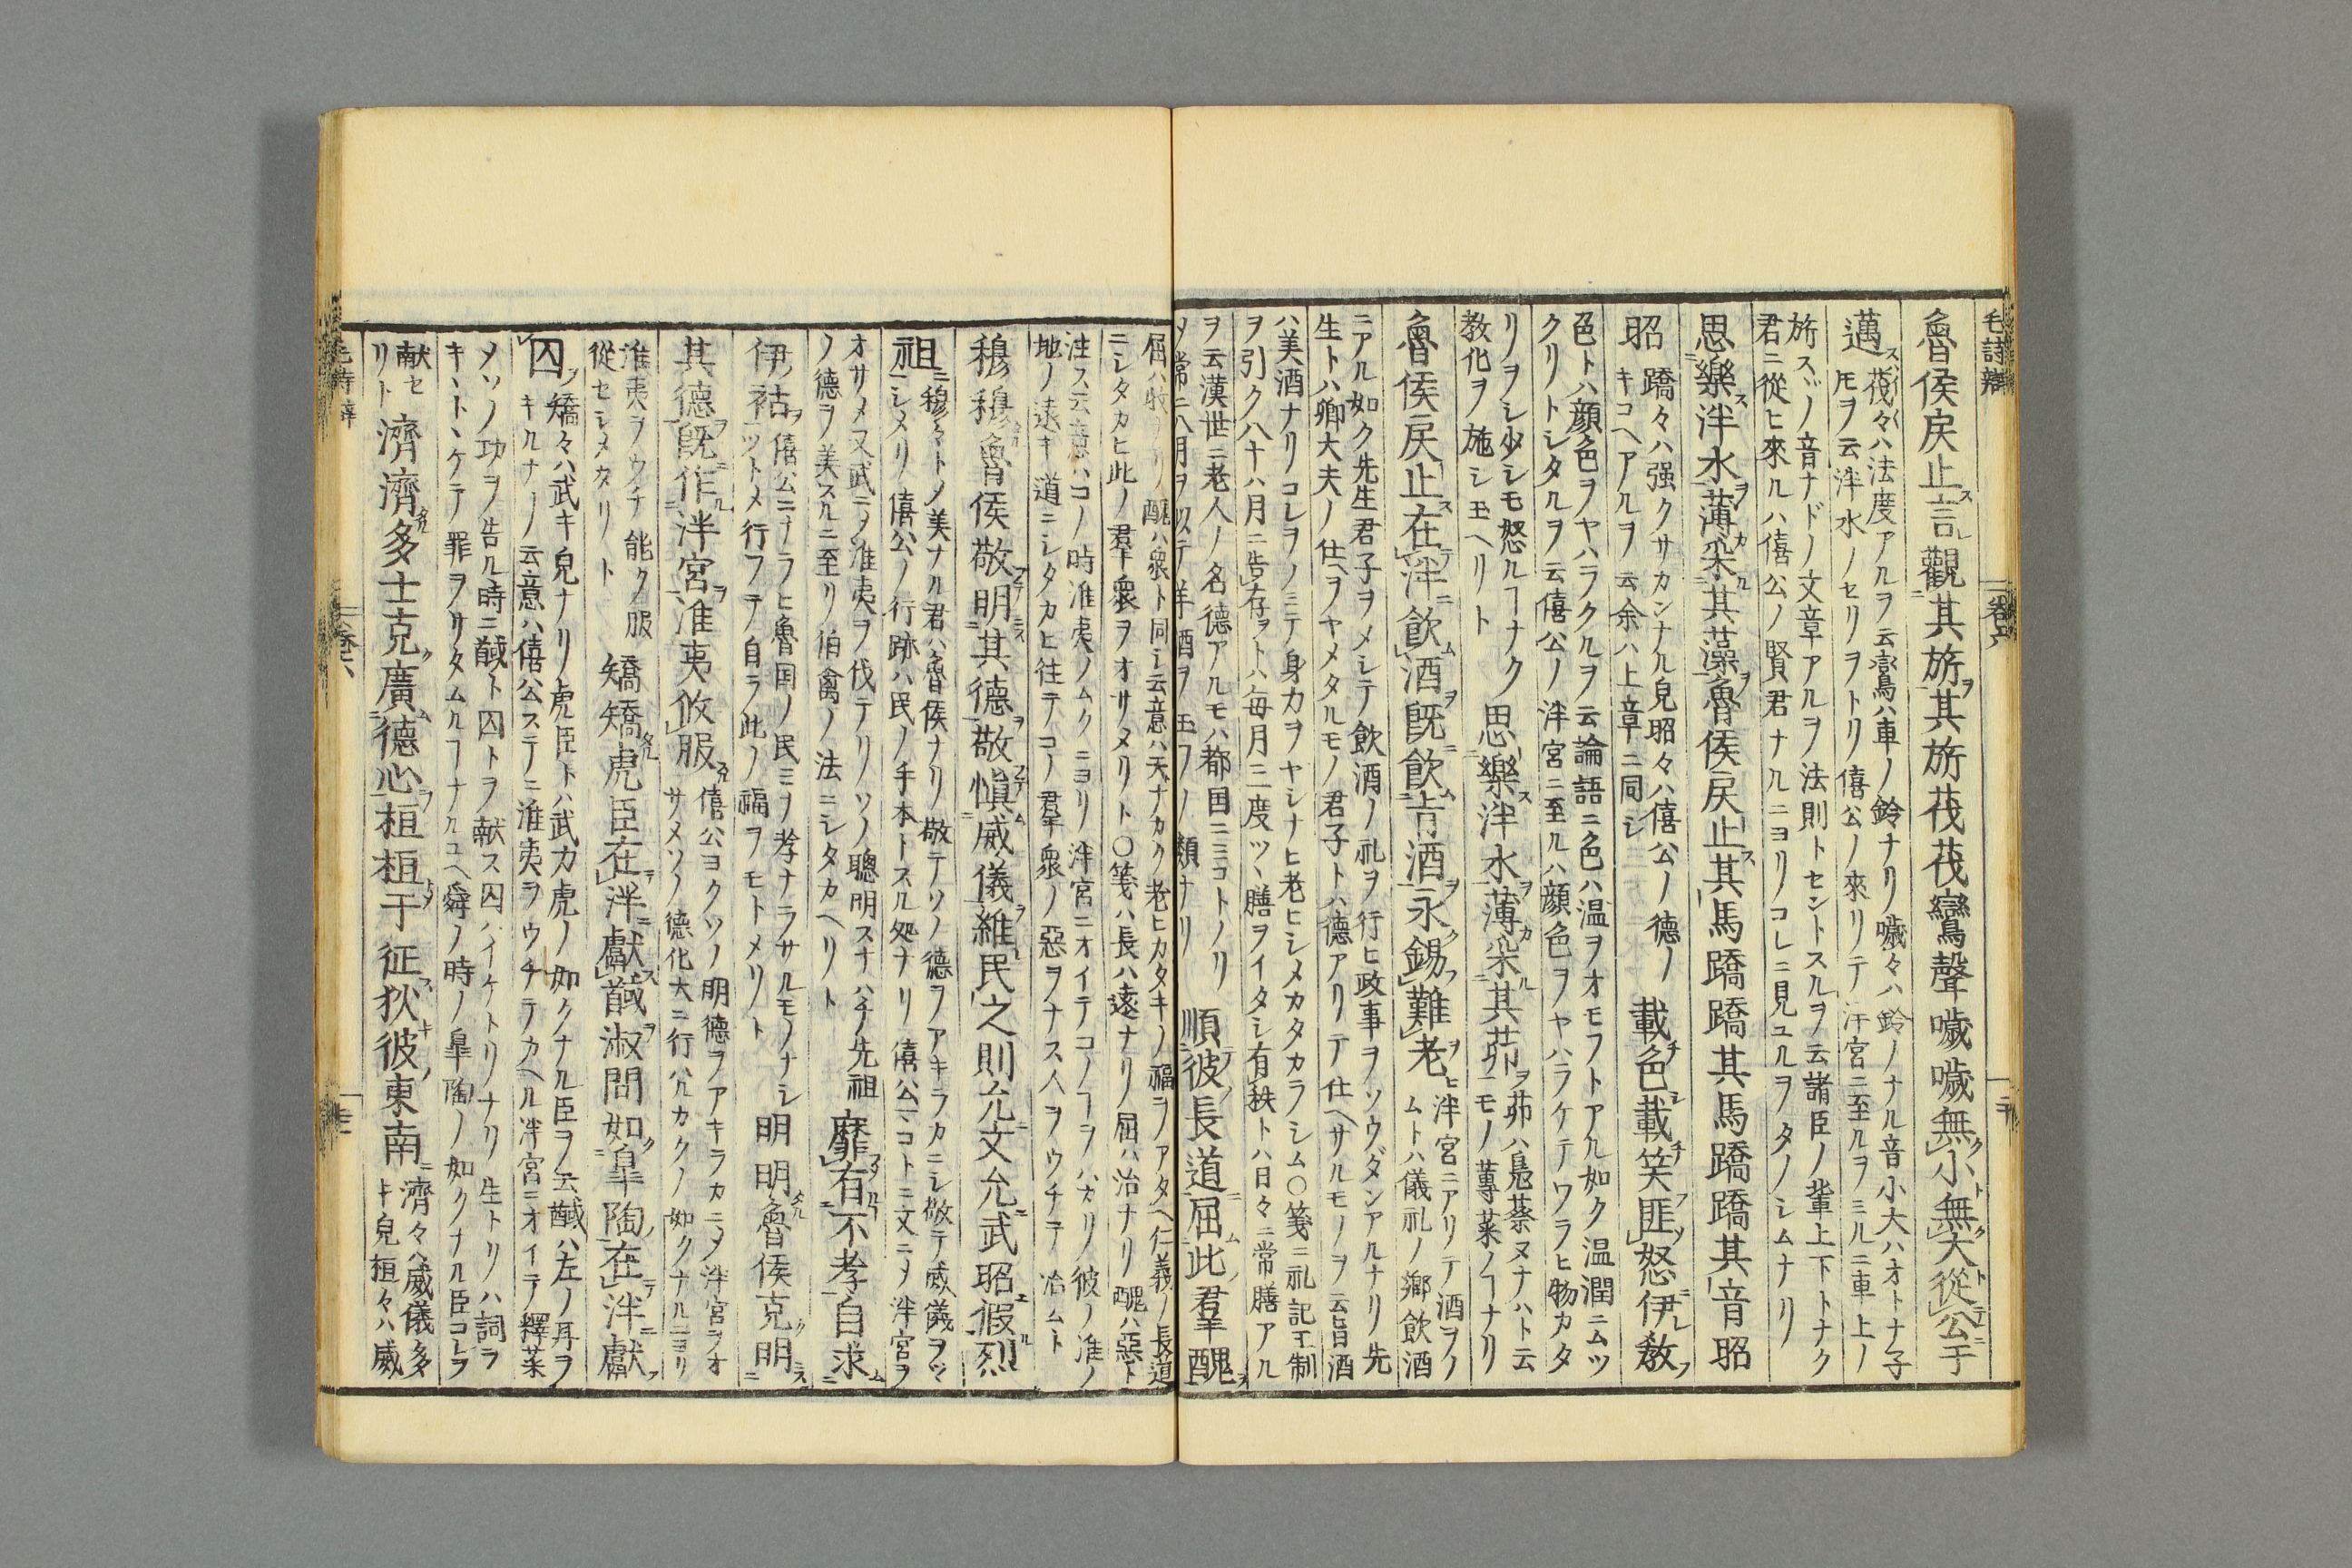 毛詩辨
卷六
魯侯戻止言觀其旂其旂茷茷鸞聲噦噦無小無大從公于
邁 茷々ハ法度アルヲ云鸞ハ車ノ鈴ナリ噦々ハ鈴ノナル音小大ハオトナ子
旂スヾノ音ナドノ文章アルヲ法則トセントスルヲ云諸臣ノ輩上下トナク
君ニ從ヒ來ルハ僖公ノ賢君ナルニヨリノコレニ見ユルヲタノシムナリ
思樂泮水薄采其藻魯侯戻止其馬蹻蹻其馬蹻蹻其音昭
昭 蹻々ハ强クサカンナル皃昭々ハ僖公ノ德ノ
キコヘアルヲ云余ハ上章ニ同シ
載色載笑匪怒伊敎
色トハ顔色ヲヤハラクルヲ云論語ニ色ハ温ヲオモフトアル如ク温潤ニムツ
クリトシタルヲ云僖公ノ泮宮ニ至ルハ顔色ヲヤハラケテワラヒ物カタ
リヲシ少シモ怒ルヿナク
教化ヲ施シ玉ヘリト
思樂泮水薄采其茆 茆ハ鳬葵ヌナハト云
モノ蓴菜ノヿナリ
魯侯戻止在泮飮酒旣飮旨酒永錫難老 泮宮ニアリテ酒ヲノ
ムトハ儀礼ノ鄕飮酒
ニアル如ク先生君子ヲメシテ飮酒ノ礼ヲ行ヒ政事ヲソウダンアルナリ先
生トハ卿大夫ノ仕ヘヲヤメタルモノ君子トハ德アリテ仕ヘサルモノヲ云旨酒
ハ美酒ナリコレヲノミテ身力ヲヤシナヒ老ヒシメカタカラシム○箋ニ礼記王制
ヲ引ク八十ハ月ニ告存ヲトハ毎月三度ツヽ膳ヲイタシ有秩トハ日々ニ常膳アル
ヲ云漢世ニ老人ノ名德アルモハ都国ニミコトノリ
メ常ニ八月ヲ以テ羊酒ヲ玉フノ類ナリ
順彼長道屈此羣醜
屈ハ收ナリ醜ハ衆ト同シ云意ハ天ナカク老ヒカタキノ福ヲノアタヘ仁義ノ長道
ニシタカヒ此ノ羣衆ヲオサメリト○箋ハ長ハ遠ナリ屈ハ治ナリ醜ハ惡ト
注ス云意ハコノ時淮夷ノムクニヨリ泮宮ニオイテコノヿヲハカリ彼ノ淮ノ
地ノ遠キ道ニシタカヒ往テコノ羣衆ノ惡ヲナス人ヲウチテ治ムト
穆穆魯侯敬明其德敬愼威儀維民之則允文允武昭假烈
祖 穆々トノ美ナル君ハ魯侯ナリ敬テソノ德ヲアキラカニシ敬テ威儀ヲツ
ヽシメリ僖公ノ行跡ハ民ノ手本トスル処ナリ僖公マコトニ文ニメ泮宮ヲ
オサメ又武ニメ淮夷ヲ伐テリソノ聰明スナハチ先祖
ノ德ヲ美スルニ至リ伯禽ノ法ニシタカヘリト
靡有不孝自求
伊祜 僖公ニナラヒ魯国ノ民ミヲ孝ナラサルモノナシ
ツトメ行フテ自ラ此ノ福ヲモトメリト
明明魯侯克明
其德旣作泮宮淮夷攸服 僖公ヨクソノ明德ヲアキラカニメ泮宮ヲオ
サメソノ德化大ニ行ハルカクノ如クナルニヨリ
淮夷ヲウチ能ク服
從セシメタリト
矯矯虎臣在泮獻馘淑問如皐陶在泮獻
囚 矯々ハ武キ皃ナリ虎臣トハ武力虎ノ如クナル臣ヲ云馘ハ左ノ耳ヲ
キルナノ云意ハ僖公ステニ淮夷ヲウチテカヘル泮宮ニオイテ釋菜
メソノ功ヲノ告ル時ニ馘ト囚トヲ献ス囚ハイケトリノナリ生トリノハ詞ヲ
キヽトヽケテ罪ヲリタムルヿナルユヘ舜ノ時ノ皐陶ノ如クナル臣コレヲ
献セ
リト
濟濟多士克廣德心桓桓于征狄彼東南 濟々ハ威儀多
キ皃桓々ハ威
毛詩辨
卷六